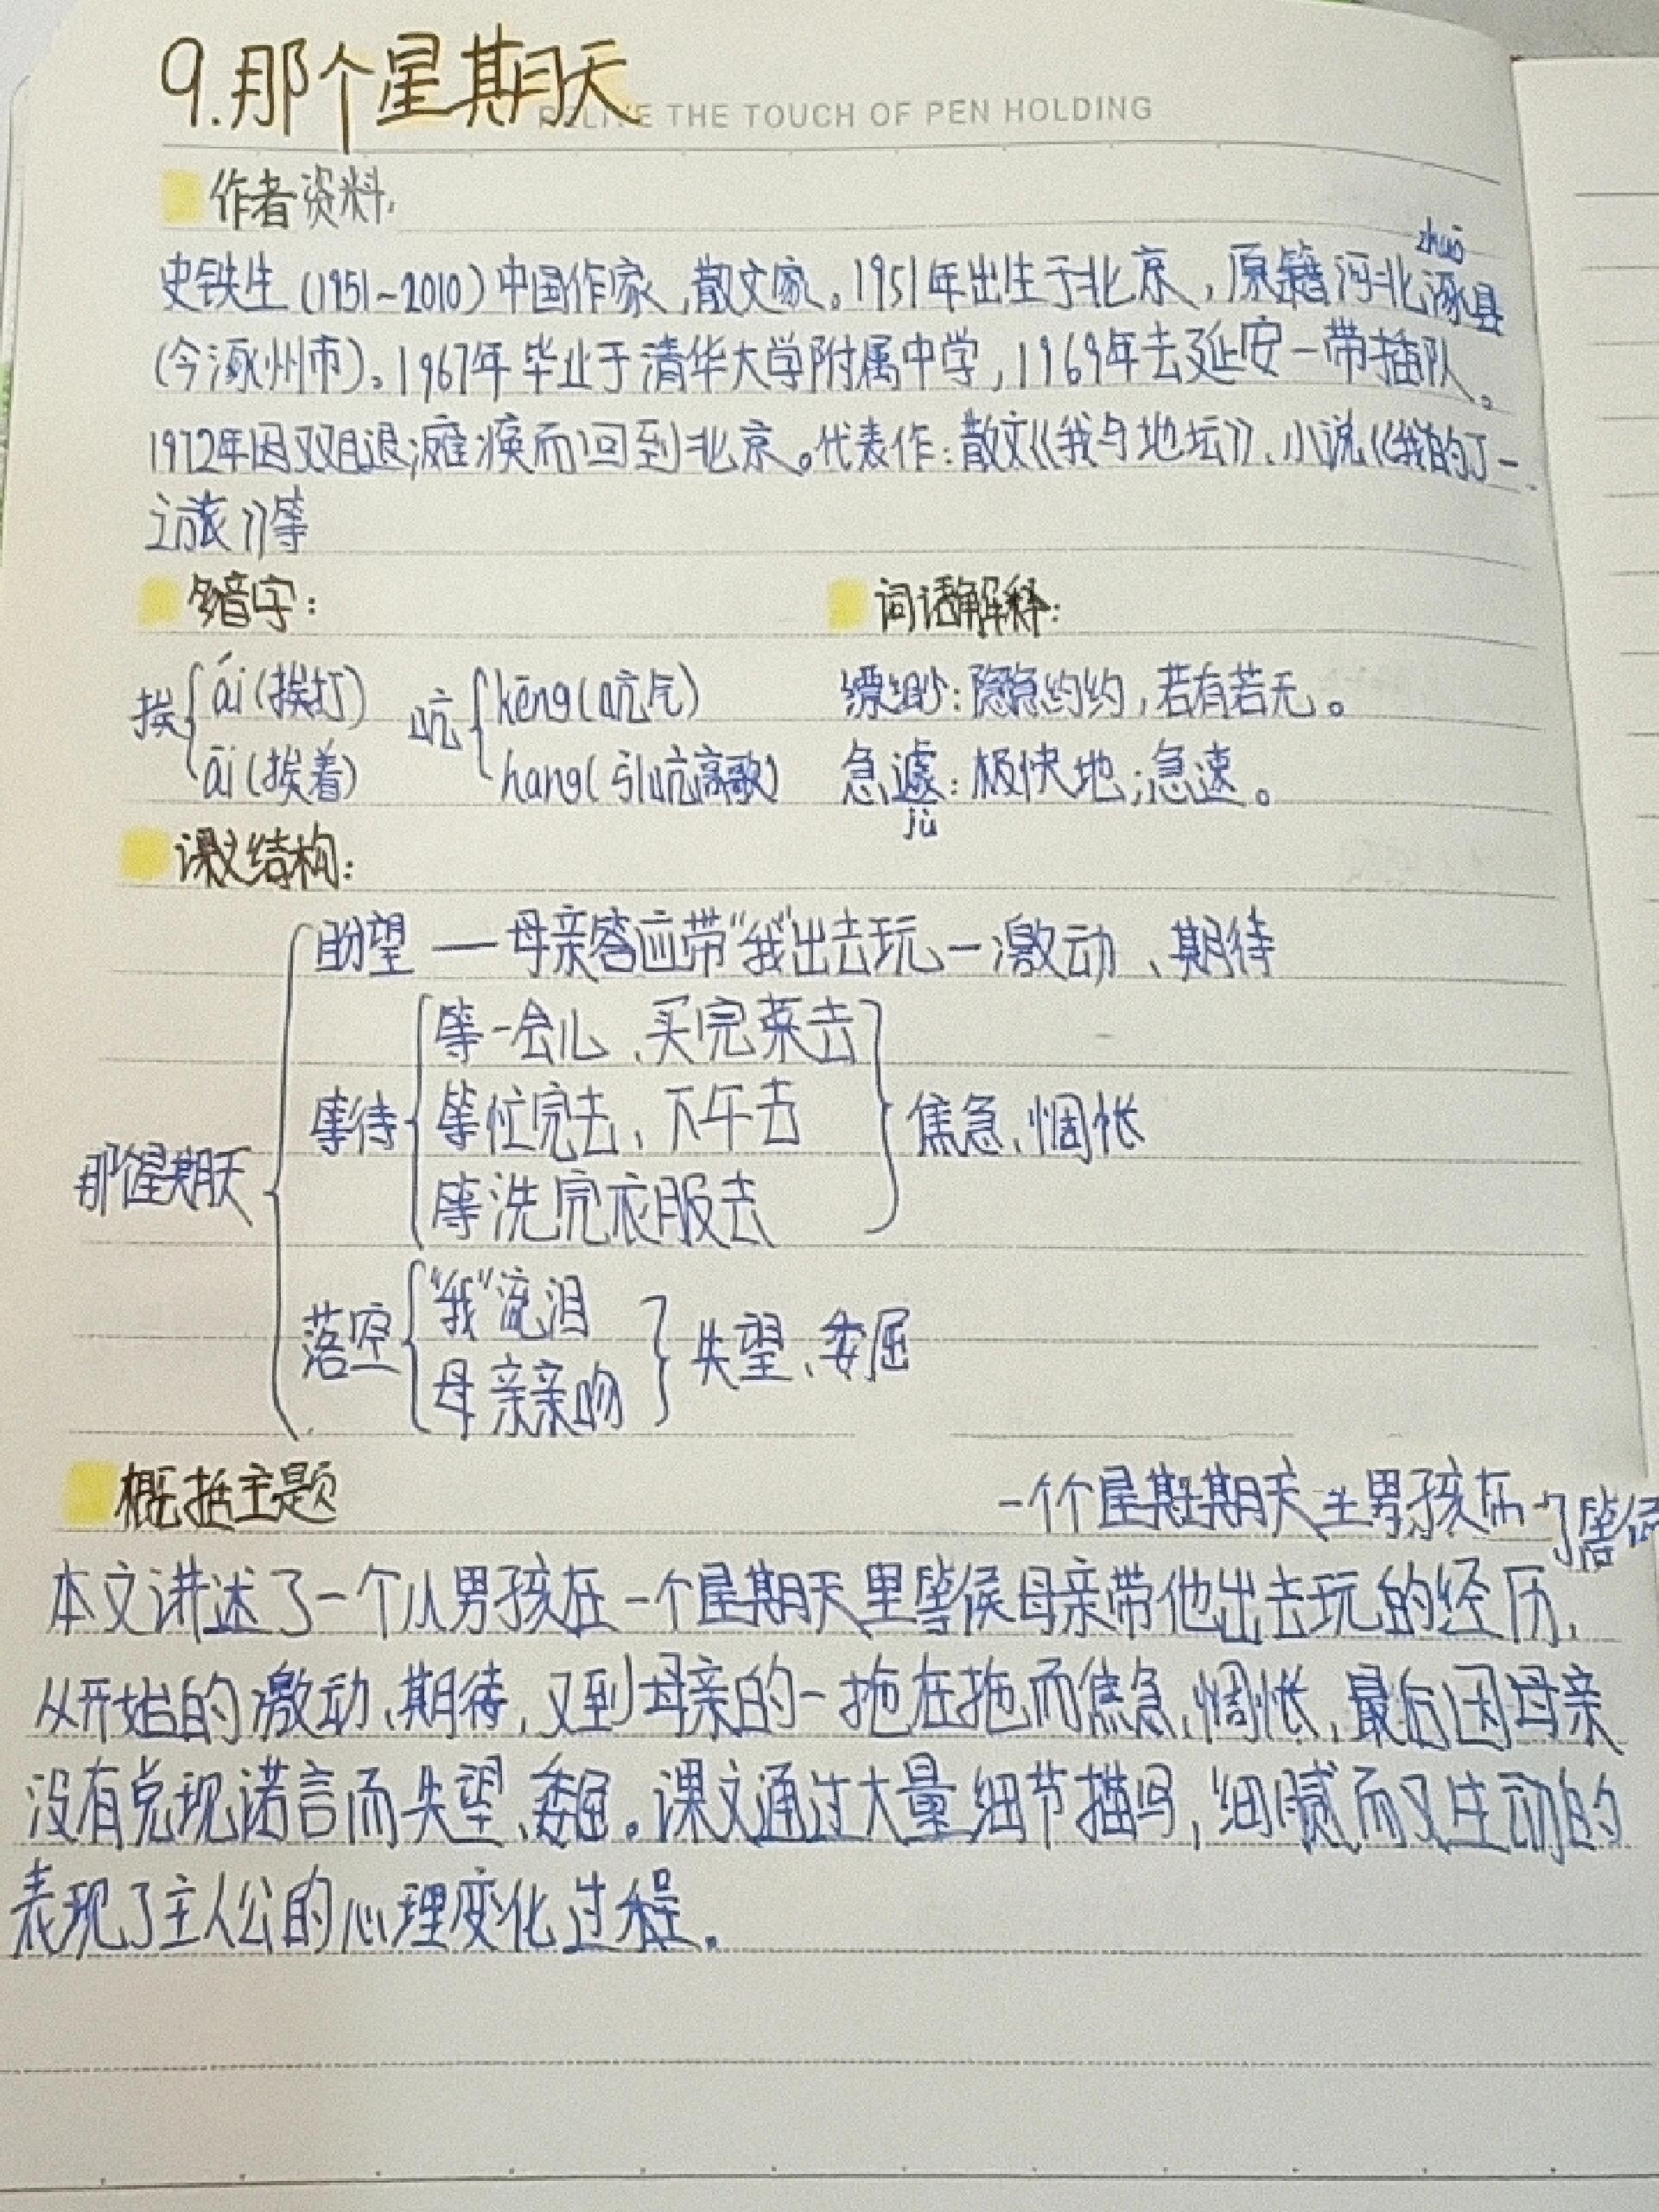 9.那个星期天
RELIVE THE TOUCH OF PEN HOLDING
作者资料:
zhuō
史铁生(1951~2010)中国作家,散文家。1951年出生于北京,原籍河北涿县
(今涿州市)。1967年毕业于清华大学附属中学,1969年去延安一带插队。
1972年因双腿瘫痪而回到北京。代表作:散文《我与地坛》、小说《我的丁一
之旅》等
多音字: 词语解释:
挨 ái(挨打) 吭 kēng(吭气) 缥缈:隐隐约约,若有若无。
āi(挨着) hang(引吭高歌) 急遽:极快地;急速。
jù
课文结构:
盼望 — 母亲答应带"我"出去玩—激动、期待
等一会儿、买完菜去
等待 等忙完去、下午去 焦急、惆怅
那个星期天
等洗完衣服去
"我"流泪
落空 失望、委屈
母亲亲吻
概括主题
本文讲述了一个小男孩在一个星期天里等候母亲带他出去玩的经历,
从开始的激动、期待,又到母亲的一拖在拖而焦急、惆怅,最后因母亲
没有兑现诺言而失望、委屈。课文通过大量细节描写,细腻而又生动的
表现了主人公的心理变化过程。